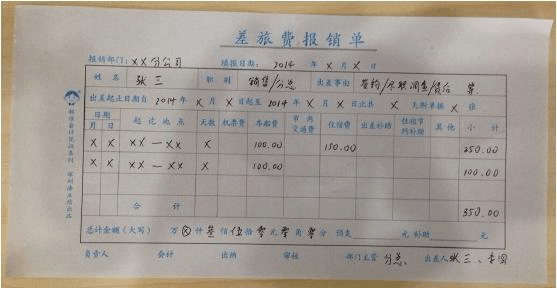 差旅费报销单
报销部门：XX分公司 填报日期：2014 年 X 月 X 日
姓名 张三 职别 销售/分总 出差事由 签约/尽职调查/贷后 等
出差起止日期自 2014年 X 月 X 日起至 2014 年 X 月 X 日止共 X 天附单据 X 张
日期 起讫地点 天数 机票费 车船费 市内交通费 住宿费 出差补助 住宿节约补助 其他 小计
月 日
X X XX—XX X 100.00 150.00 250.00
X X XX—XX X 100.00 100.00
合计 350.00
总计金额（大写） 万 ⊗ 仟 叁 佰 伍 拾 零 元 零 角 零 分 预支 元 补助 元
负责人 会计 出纳 审核 部门主管 分总 出差人 张三、李四
标准会计凭证系列